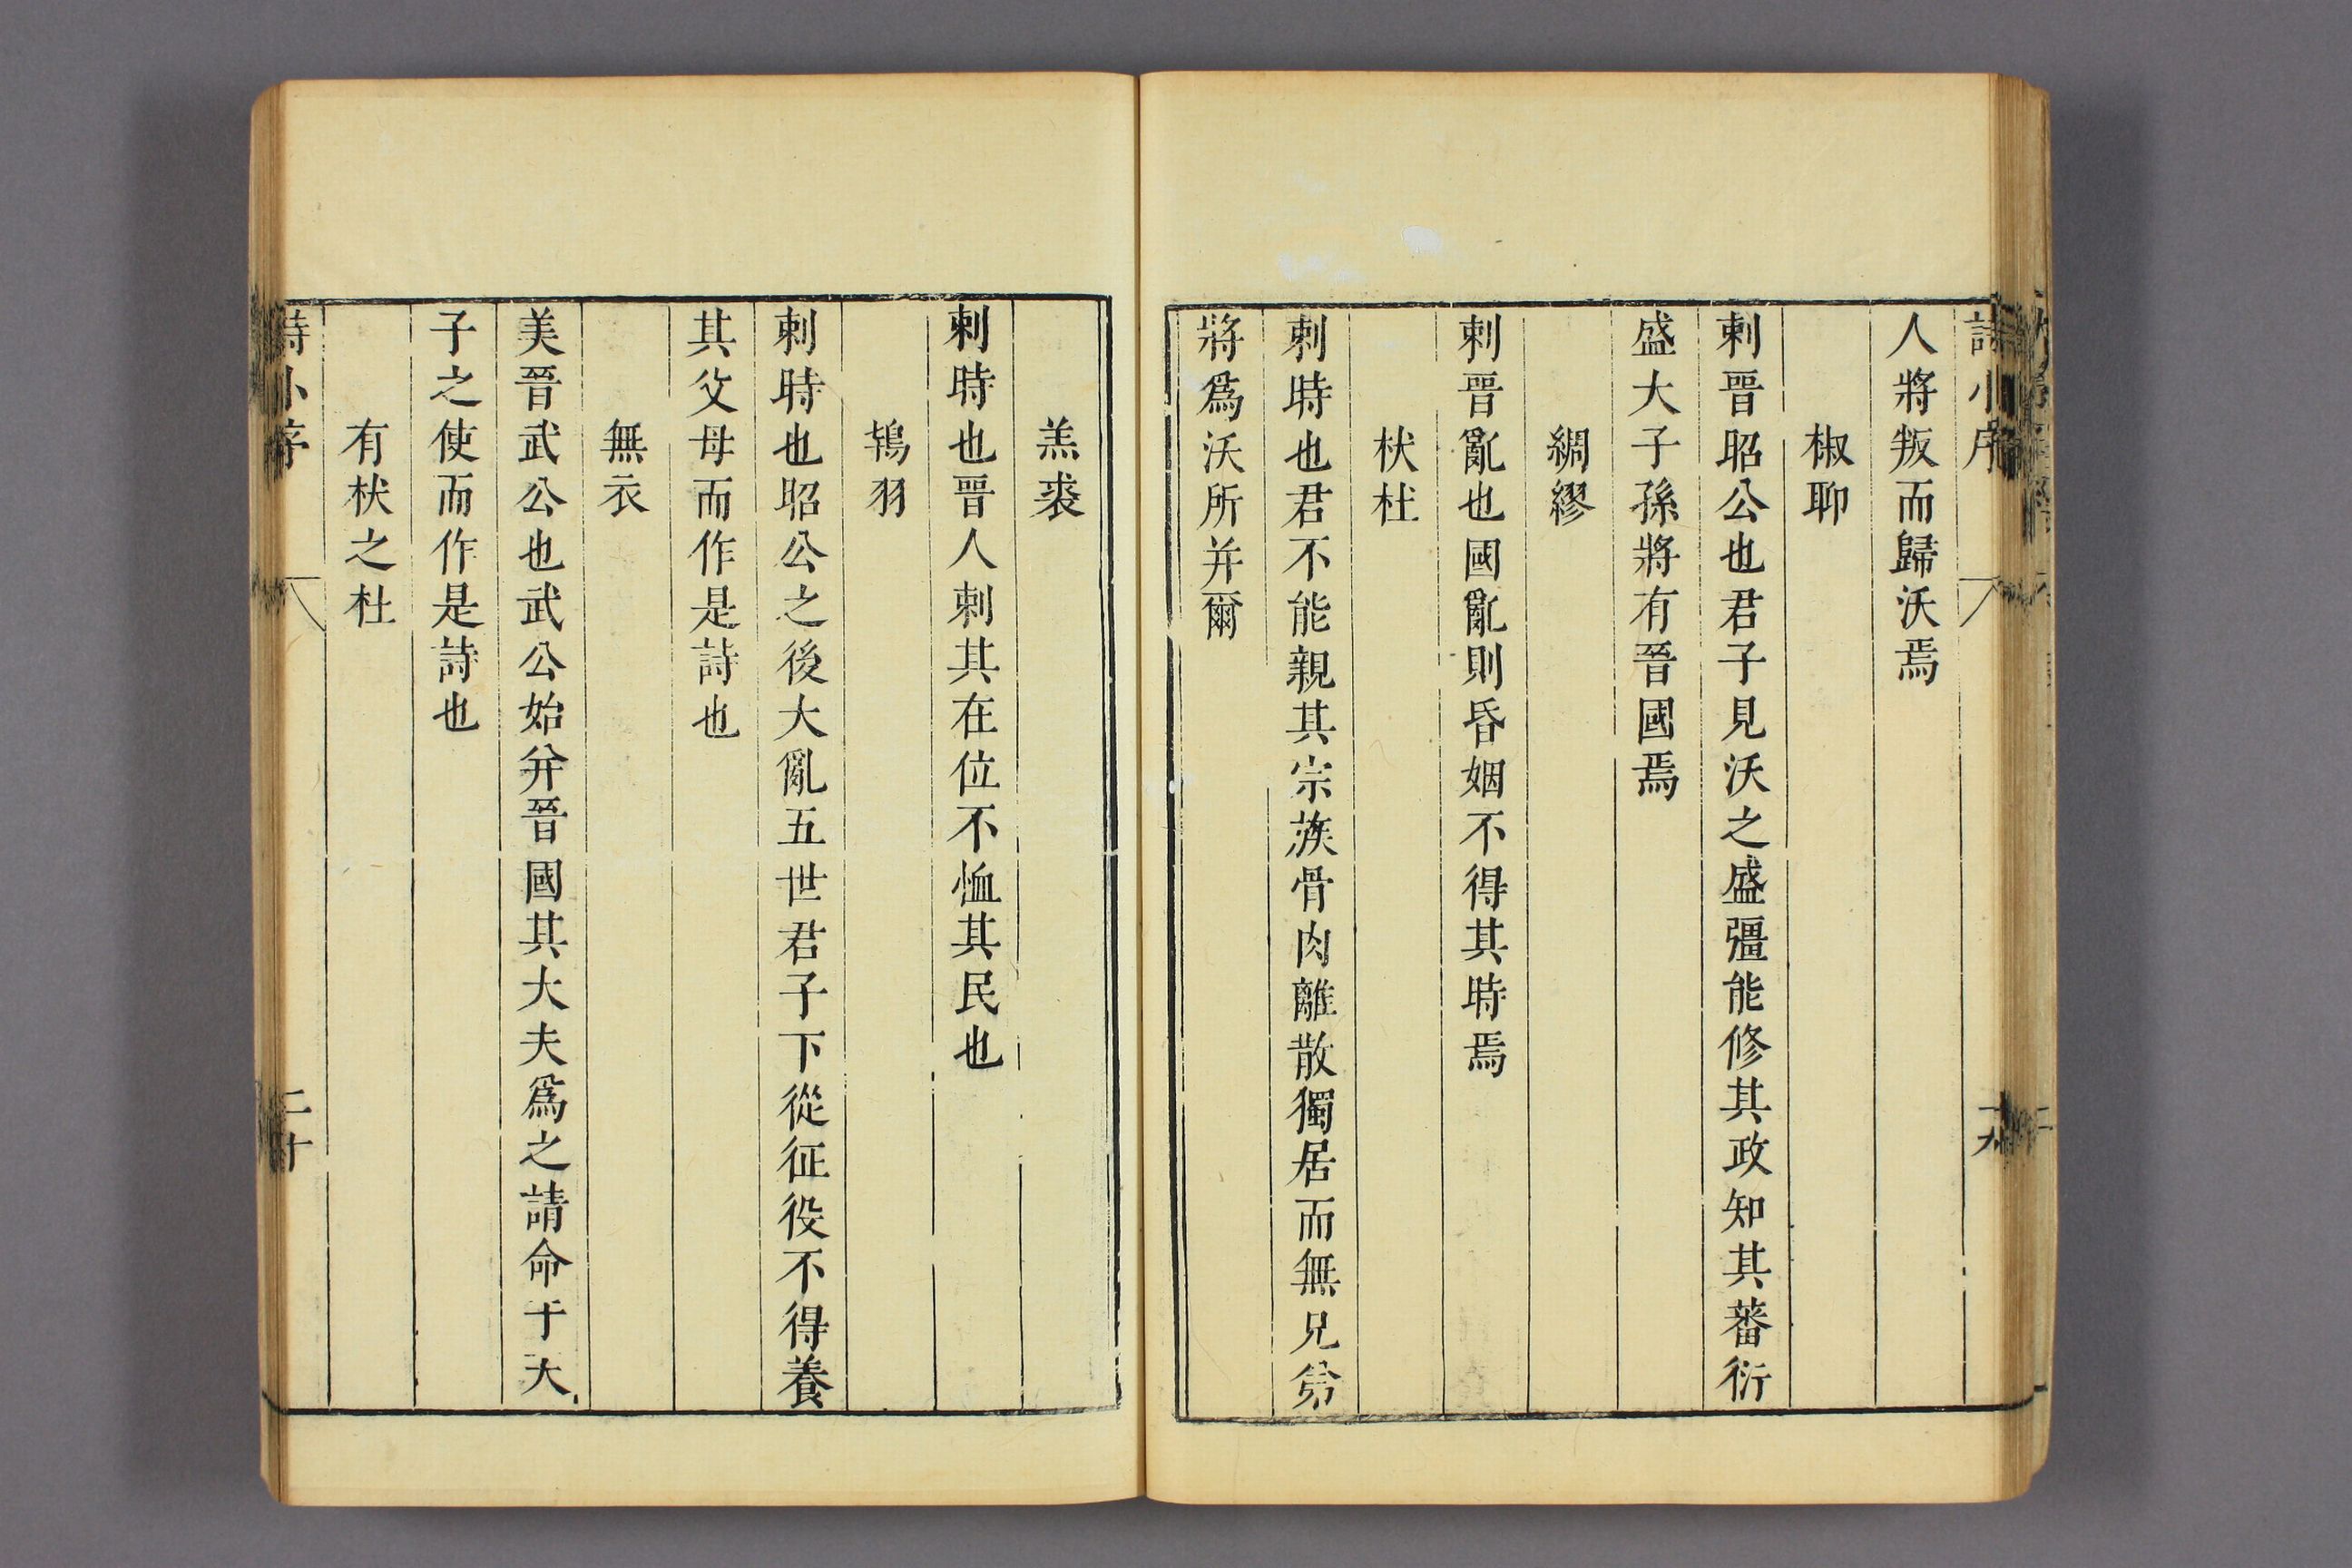 詩小序
十九
人將叛而歸沃焉
椒聊
刺晉昭公也君子見沃之盛彊能修其政知其蕃衍
盛大子孫將有晉國焉
綢繆
刺晉亂也國亂則昏姻不得其時焉
杕杜
刺時也君不能親其宗族骨肉離散獨居而無兄弟
將爲沃所并爾
羔裘
刺時也晉人刺其在位不恤其民也
鴇羽
刺時也昭公之後大亂五世君子下從征役不得養
其父母而作是詩也
無衣
美晉武公也武公始并晉國其大夫爲之請命于天
子之使而作是詩也
有杕之杜
詩小序
二十